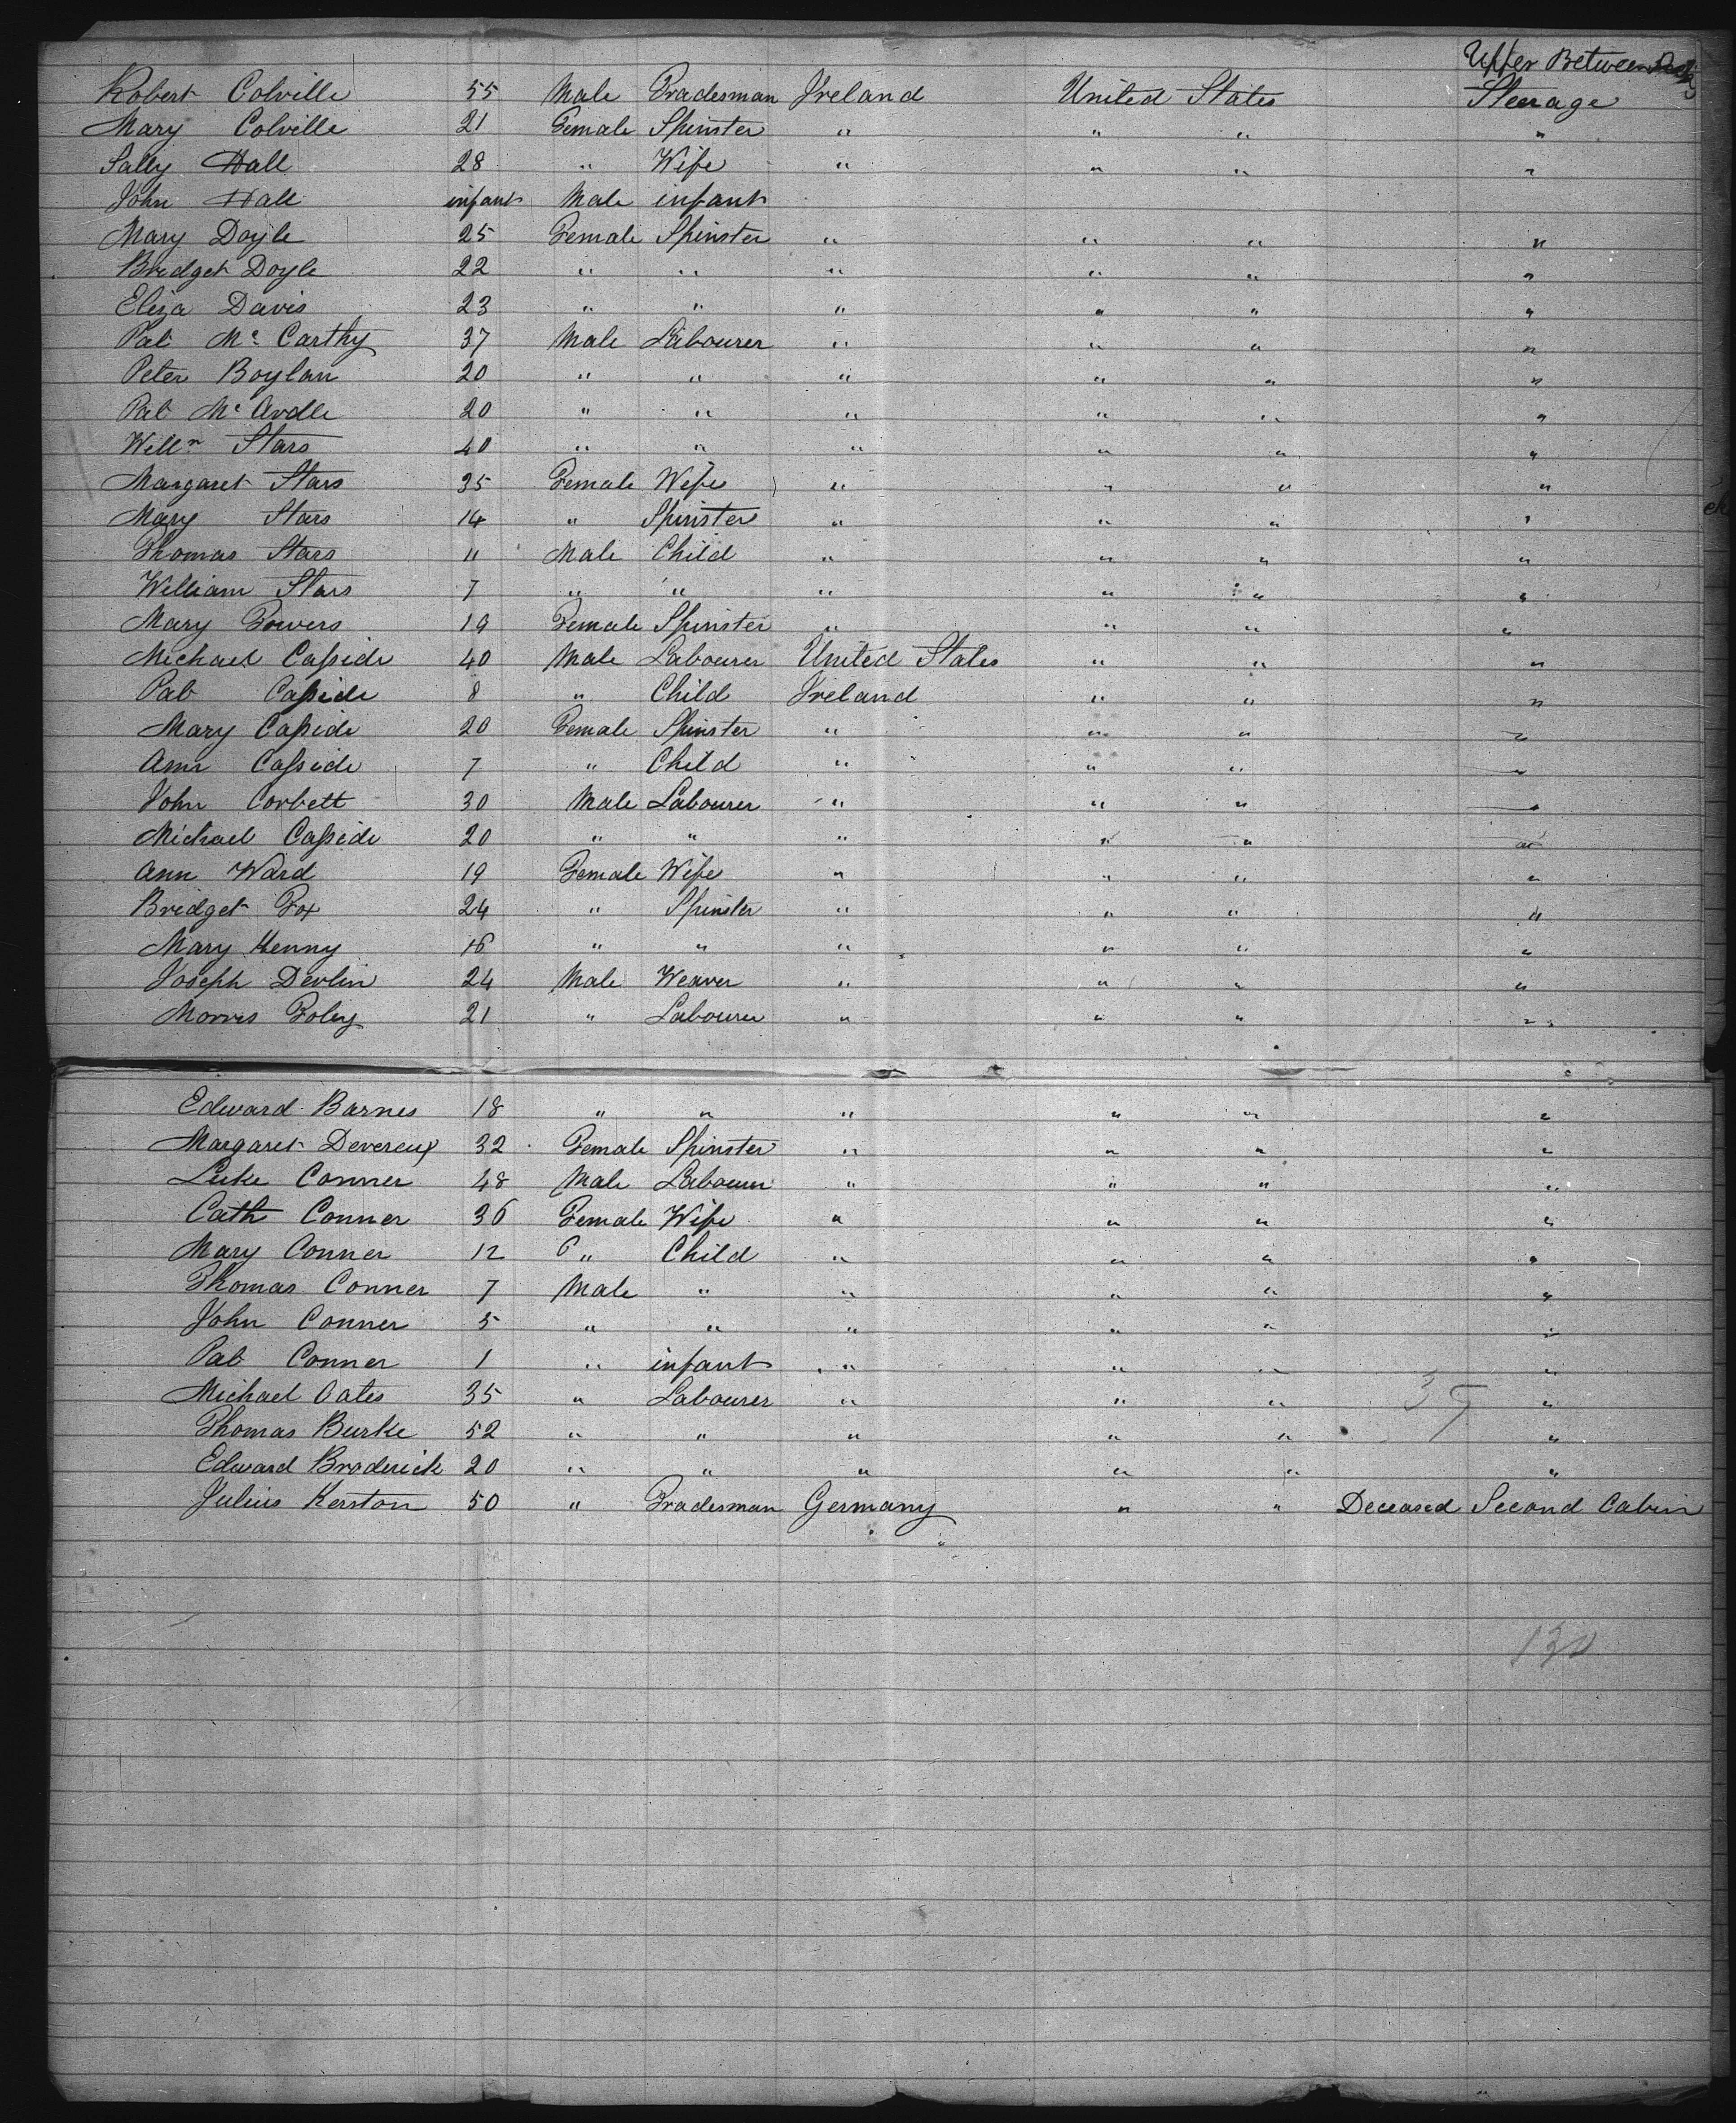 Upper Between Decks
Robert Colville 55 Male Tradesman Ireland United States Steerage
Mary Colville 21 Female Spinster " " " "
Sally Hall 28 " Wife " " " "
John Hall infant Male infant
Mary Doyle 25 Female Spinster " " " "
Bridget Doyle 22 " " " " " "
Eliza Davis 23 " " " " " "
Pat Mc Carthy 37 Male Labourer " " " "
Peter Boylan 20 " " " " " "
Pat Mc Ardle 20 " " " " " "
Willm Stars 40 " " " " " "
Margaret Stars 35 Female Wife " " " "
Mary Stars 14 " Spinster " " " "
Thomas Stars 11 Male Child " " " "
William Stars 7 " " " " " "
Mary Powers 19 Female Spinster " " " "
Michael Casside 40 Male Labourer United States " " "
Pat Casside 8 " Child Ireland " " "
Mary Casside 20 Female Spinster " " " "
Ann Casside 7 " Child " " " "
John Corbett 30 Male Labourer " " " "
Michael Casside 20 " " " " " "
Ann Ward 19 Female Wife " " " "
Bridget Fox 24 " Spinster " " " "
Mary Kenny 16 " " " " " "
Joseph Devlin 24 Male Weaver " " " "
Morris Foley 21 " Labourer " " " "
Edward Barnes 18 " " " " " "
Margaret Devereux 32 Female Spinster " " " "
Luke Conner 48 Male Labourer " " " "
Cath Conner 36 Female Wife " " " "
Mary Conner 12 " Child " " " "
Thomas Conner 7 Male " " " " "
John Conner 5 " " " " " "
Pat Conner 1 " infant " " " "
Michael Oates 35 " Labourer " " " "
Thomas Burke 52 " " " " " "
Edward Broderick 20 " " " " " "
Julius Kerston 50 " Tradesman Germany " " Deceased Second Cabin
130